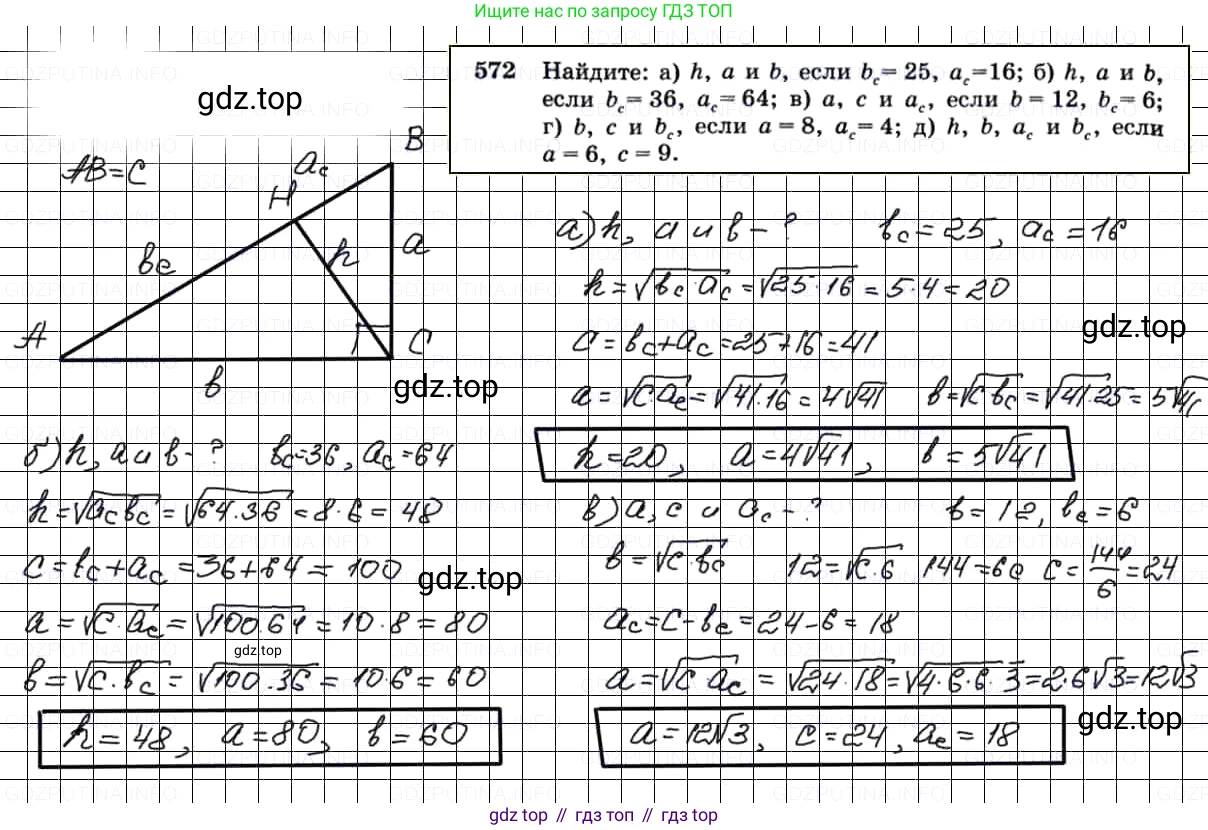 Ищите нас по запросу ГДЗ ТОП
572 Найдите: а) h, a и b, если b_c = 25, a_c = 16; б) h, a и b,
если b_c = 36, a_c = 64; в) a, c и a_c, если b = 12, b_c = 6;
г) b, c и b_c, если a = 8, a_c = 4; д) h, b, a_c и b_c, если
a = 6, c = 9.
gdz.top
AB=C
a_c
B
H
b_c
h
a
A
C
b
а) h, a и b – ? b_c = 25, a_c = 16
h = √(b_c·a_c) = √(25·16) = 5·4 = 20
gdz.top
c = b_c + a_c = 25 + 16 = 41
gdz.top
a = √(c·a_c) = √(41·16) = 4√41 b = √(c·b_c) = √(41·25) = 5√41
h = 20, a = 4√41, b = 5√41
б) h, a и b – ? b_c = 36, a_c = 64
h = √(a_c b_c) = √(64·36) = 8·6 = 48
c = b_c + a_c = 36 + 64 = 100
gdz.top
a = √(c·a_c) = √(100·64) = 10·8 = 80
gdz.top
b = √(c·b_c) = √(100·36) = 10·6 = 60
h = 48, a = 80, b = 60
в) a, c и a_c – ? b = 12, b_c = 6
b = √(c·b_c) 12 = √(c·6) 144 = 6c c = 144/6 = 24
a_c = c – b_c = 24 – 6 = 18
a = √(c·a_c) = √(24·18) = √(4·6·6·3) = 2·6√3 = 12√3
gdz.top
a = 12√3, c = 24, a_c = 18
gdz top // гдз топ // gdz top